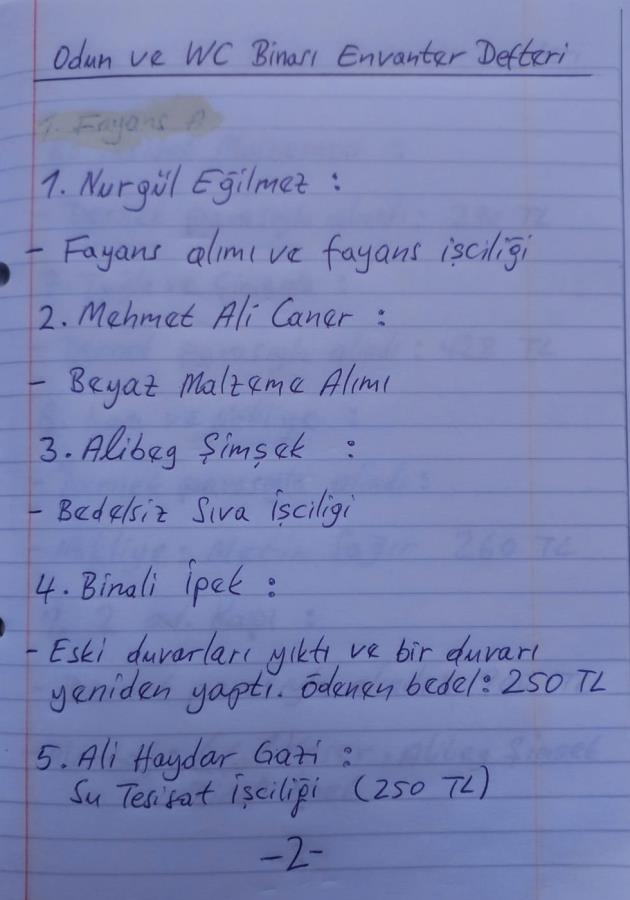 Odun ve WC Binası Envanter Defteri
1. Fayans A
1. Nurgül Eğilmez :
- Fayans alımı ve fayans işciliği
2. Mehmet Ali Caner :
- Beyaz Malzeme Alımı
3. Alibeg Şimşek :
- Bedelsiz Sıva İşciligi
4. Binali İpek :
- Eski duvarları yıktı ve bir duvarı
yeniden yaptı. Ödenen bedel: 250 TL
5. Ali Haydar Gazi :
Su Tesisat İşciliği (250 TL)
-2-